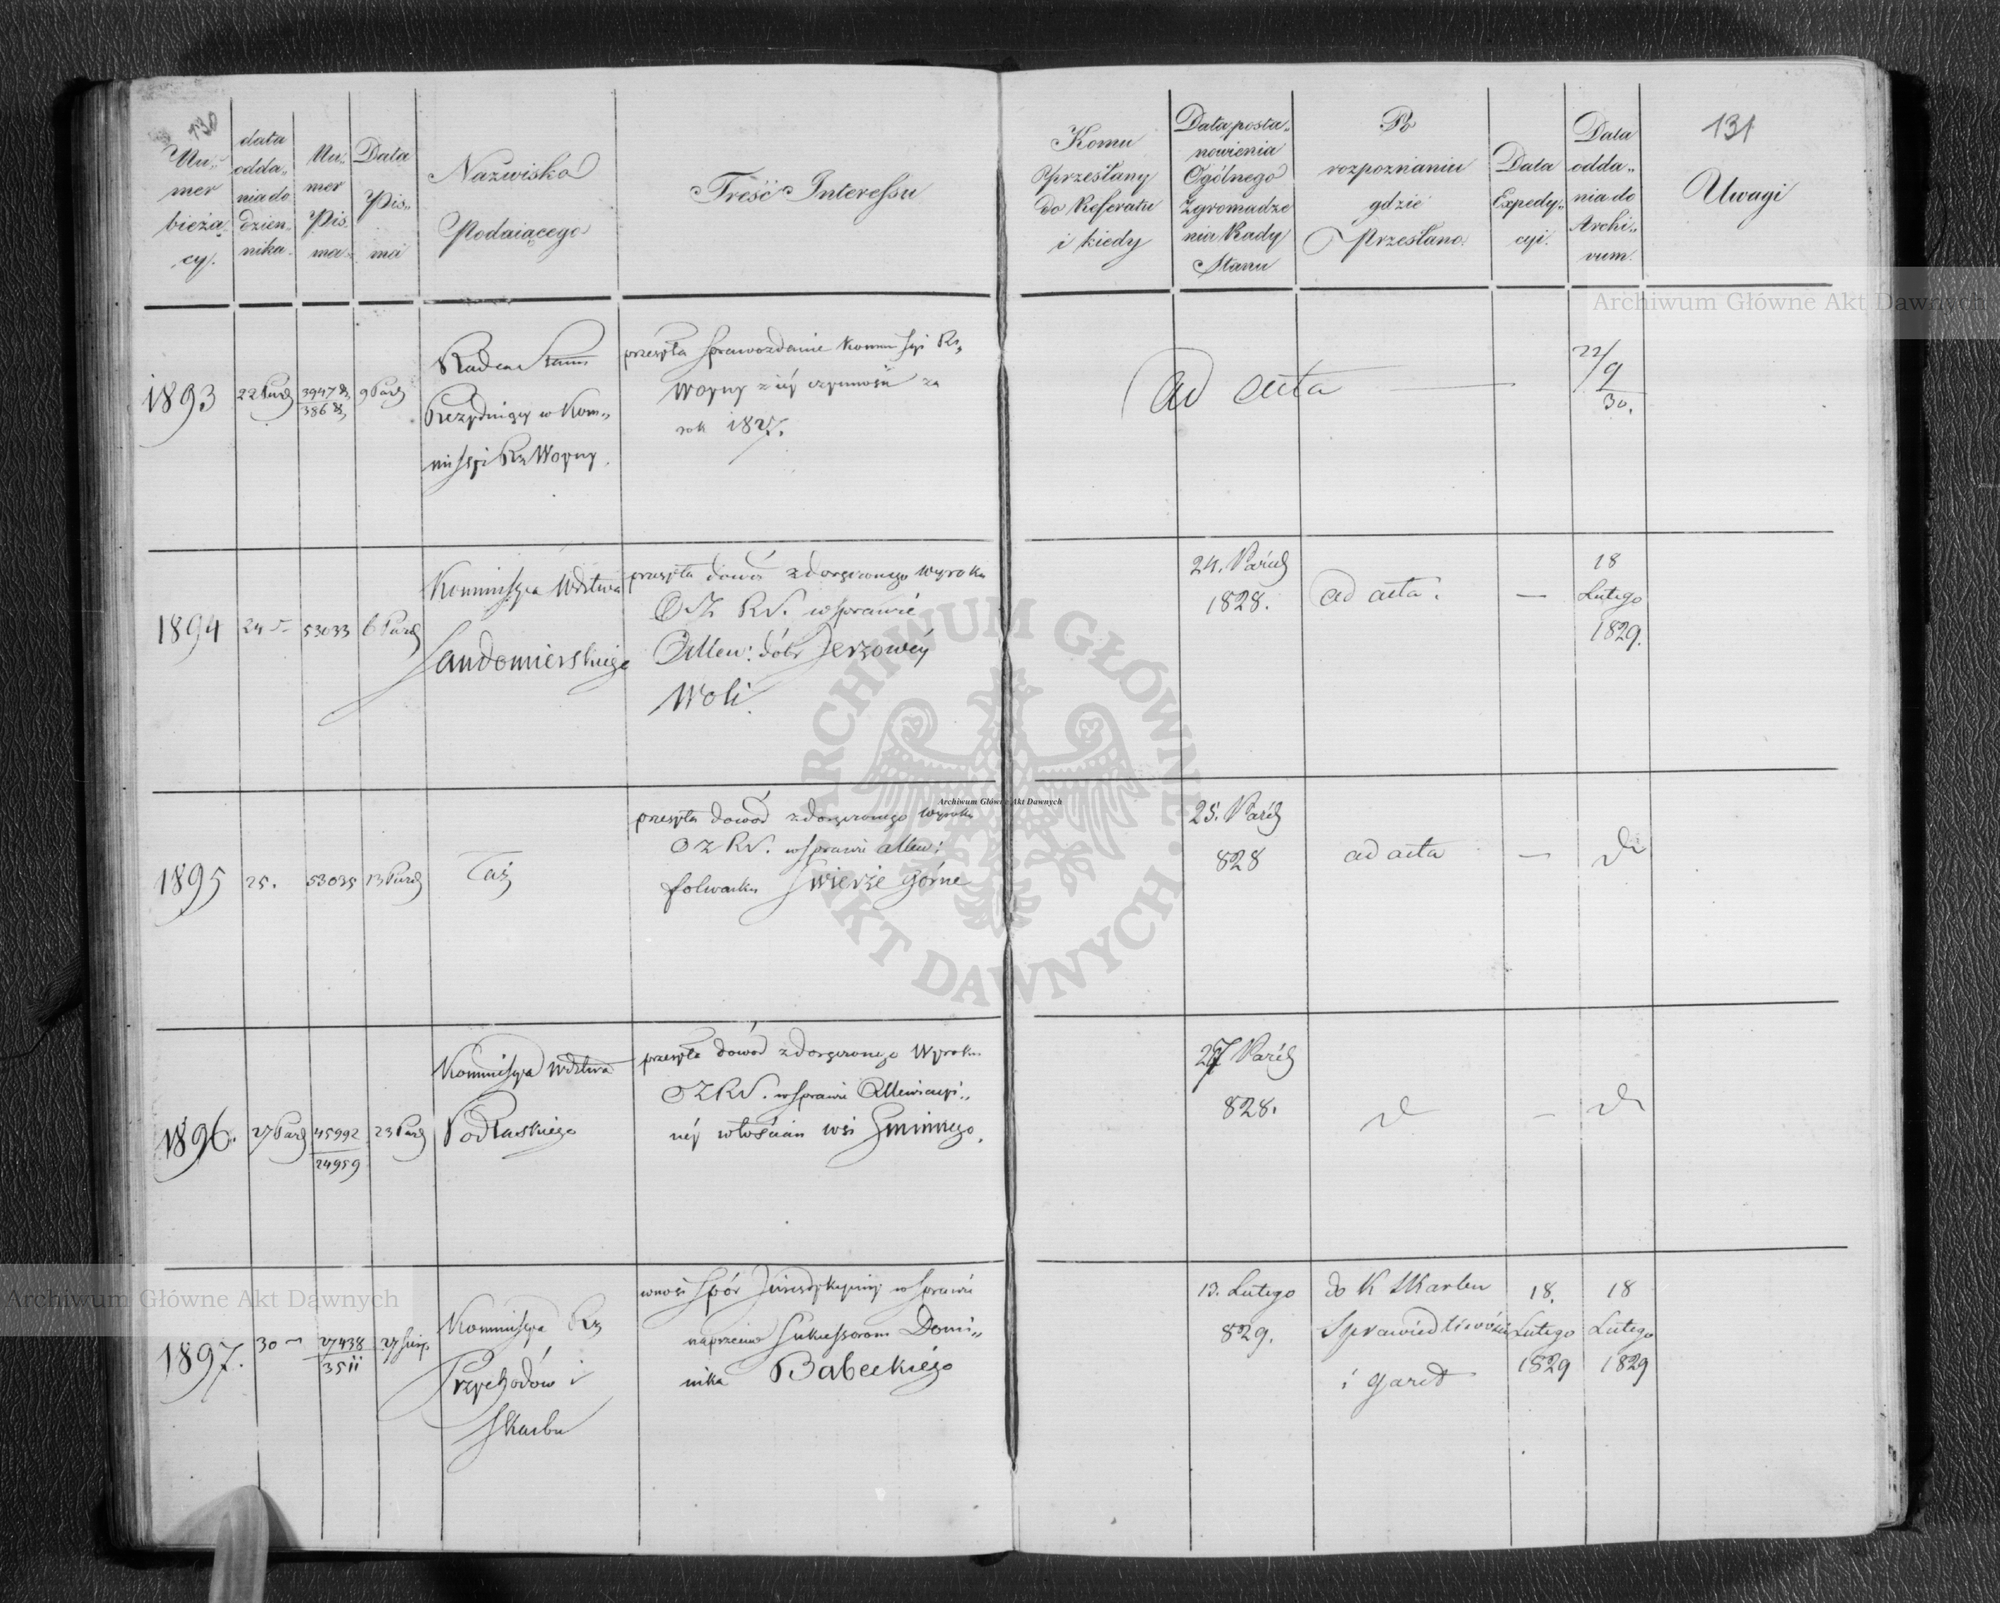 130
Nu-
mer
bieżą-
cy.
data
odda-
nia do
dzien-
nika.
Nu-
mer
Pis
ma
Data
Pis-
ma
Nazwisko
Podaiącego
Treść Interessu
Komu
Przesłany
do Referatu
i kiedy
Data posta-
nowienia
Ogólnego
Zgromadze
nia Rady
Stanu
Po
rozpoznaniu
gdzie
Przesłano.
Data
Expedy-
cyi.
Data
odda-
nia do
Archi-
vum.
131
Uwagi
1893
22 Paźd
9 Paźd
Radca Stanu
Prezyduiący w Kom-
missyi Rz Woyny.
przesyła sprawozdanie Kommissyi Rz
Woyny z iéy czynności za
rok 1827.
ad acta
22/9
30.
1894
24
53033
6 Paźd
Kommissya Wdztwa
Sandomierskiego
przesyła dowód z doręczonego wyroku
OZ RS. w sprawie
dóbr Jerzowéy
Woli.
24. Paźd
1828.
ad acta.
—
18
Lutego
1829.
1895
25.
53035
13 Paźd
Taż
przesyła dowód z doręczonego wyroku
OZ RS. w sprawie
folwarku Swierże górne
25. Paźd
828
ad acta
—
dt
1896.
27 Paźd
45992
24959
23 Paźd
Kommissya Wdztwa
Podlaskiego
przesyła dowód z doręczonego Wyroku
OZ RS. w sprawie
néy włościan wsi Gminnego.
27 Paźd
828.
dt
—
dt
1897.
30
27438
3511
Kommissya Rz
Przychodów i
Skarbu
wnosi spór Jurisdykcyiny w sprawie
naprzeciw Sukcessorom Domi-
nika Babeckiégo
13. Lutego
829.
do K Skarbu
Sprawiedliwości
i
18.
Lutego
1829
18
Lutego
1829
Archiwum Główne Akt Dawnych
Archiwum Główne Akt Dawnych
Archiwum Główne Akt Dawnych
ARCHIWUM GŁÓWNE AKT DAWNYCH